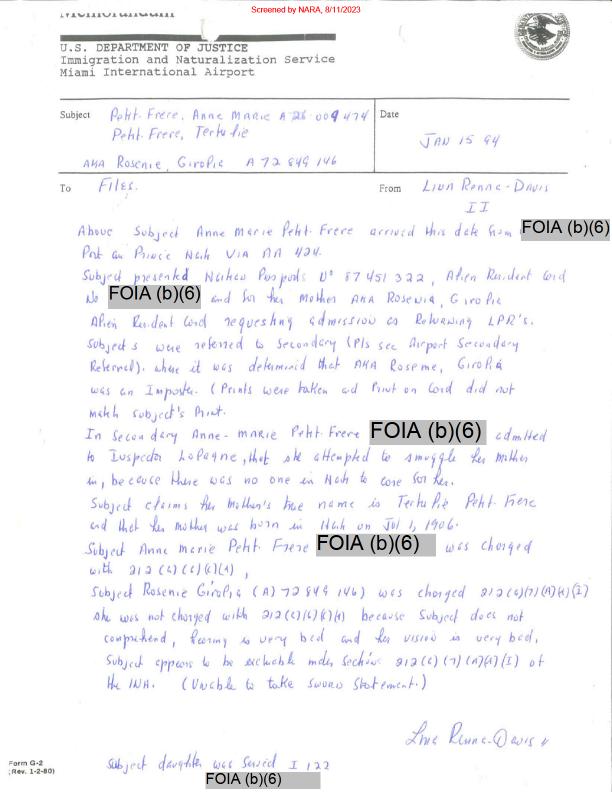 Screened by NARA, 8/11/2023
Memorandum
U.S. DEPARTMENT OF JUSTICE
Immigration and Naturalization Service
Miami International Airport
Subject Petit-Frere, Anne Marie A 26 009 474
Petit-Frere, Tertulie
AKA Rosenie, Giropia A 72 849 146
Date
JAN 15 94
To Files.
From Lina Renna-Davis
II
Above Subject Anne Marie Petit-Frere arrived this date from FOIA (b)(6)
Port au Prince Haiti VIA AA 424.
Subject presented Haitian Passports Nº 87451322, Alien Resident Card
No FOIA (b)(6) and for her Mother AKA Rosenia, Giropia
Alien Resident Card requesting admission as Returning LPR's.
Subjects were referred to Secondary (Pls see Airport Secondary
Referral). where it was determined that AKA Roseme, Giropia
was an Imposter. (Prints were taken and Print on Card did not
match subject's Print.
In Secondary Anne-Marie Petit-Frere FOIA (b)(6) admitted
to Inspector LaPagne, that she attempted to smuggle her mother
in, because there was no one in Haiti to care for her.
Subject claims her mother's true name is Tertulie Petit-Frere
and that her mother was born in Haiti on Jul 1, 1906.
Subject Anne Marie Petit-Frere FOIA (b)(6) was charged
with 212(a)(6)(E)(i),
Subject Rosenie Giropia (A) 72 849 146) was charged 212(a)(7)(A)(i)(I)
she was not charged with 212(a)(6)(C)(i) because Subject does not
comprehend, hearing is very bad and her vision is very bad.
Subject appears to be excludable under section 212(a)(7)(A)(i)(I) of
the INA. (Unable to take sworn statement.)
Lina Renna-Davis II
Form G-2
(Rev. 1-2-80)
Subject daughter was served I 122
FOIA (b)(6)